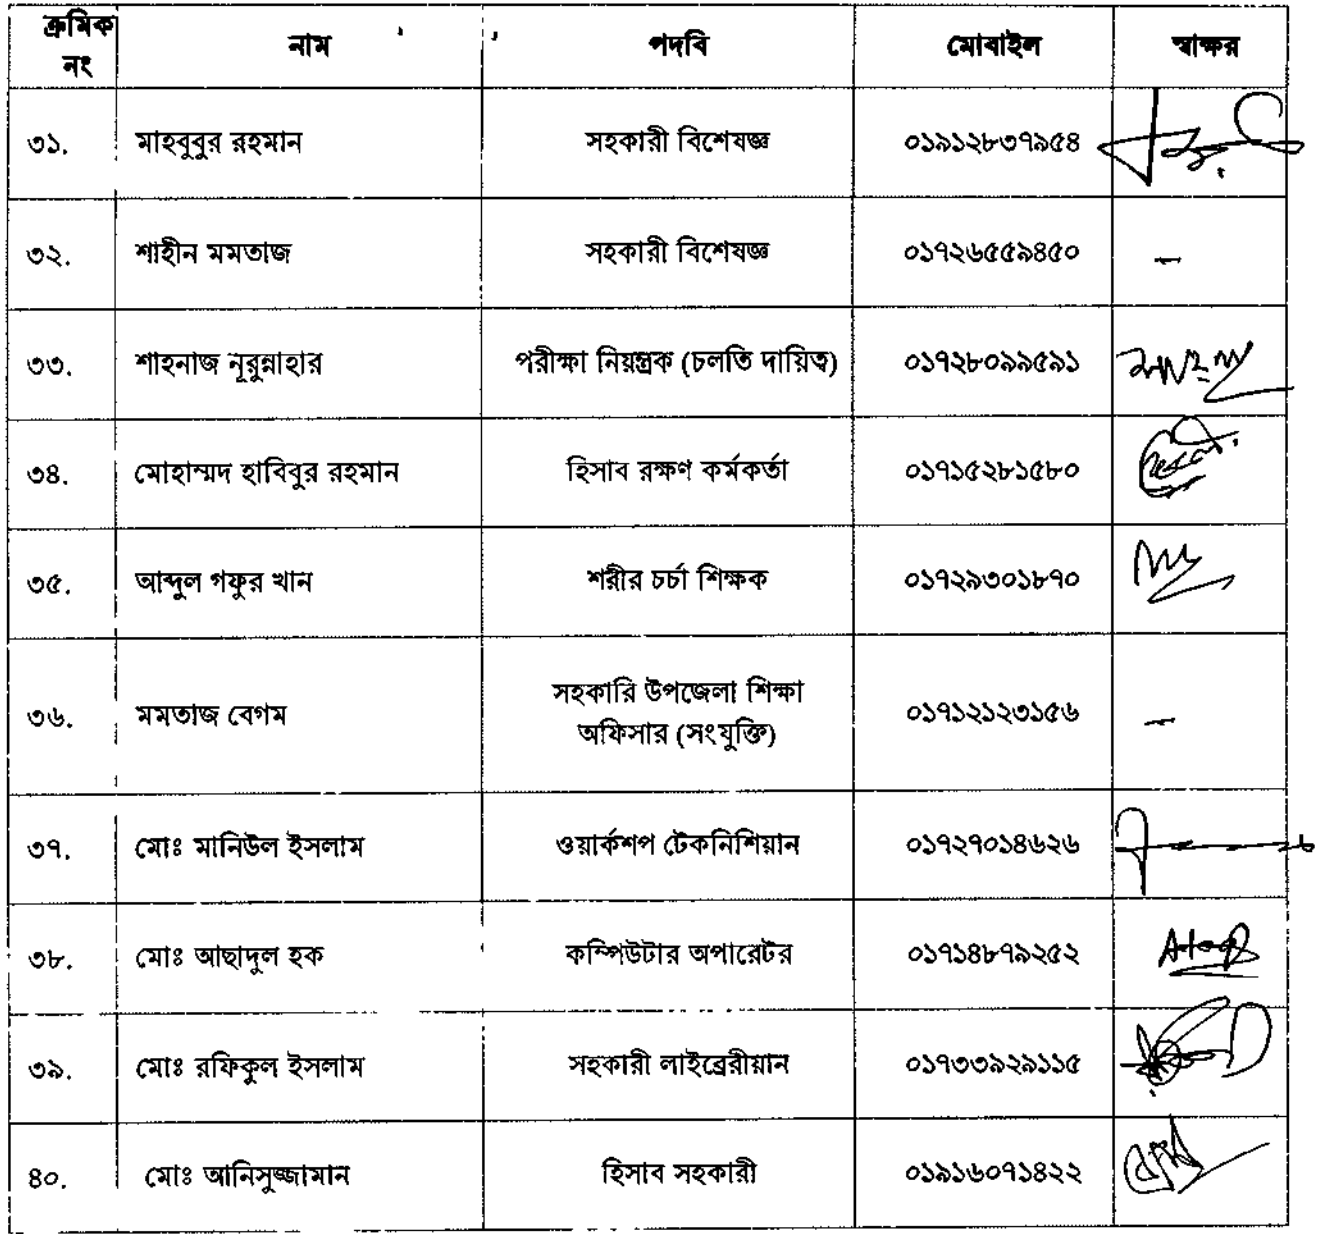 ক্রমিক নং নাম পদবি মোবাইল স্বাক্ষর
৩১. মাহবুবুর রহমান সহকারী বিশেষজ্ঞ ০১৯১২৮৩৭৯৫৪
৩২. শাহীন মমতাজ সহকারী বিশেষজ্ঞ ০১৭২৬৫৫৯৪৫০ –
৩৩. শাহনাজ নূরুন্নাহার পরীক্ষা নিয়ন্ত্রক (চলতি দায়িত্ব) ০১৭২৮০৯৯৫৯১
৩৪. মোহাম্মদ হাবিবুর রহমান হিসাব রক্ষণ কর্মকর্তা ০১৭১৫২৮১৫৮০
৩৫. আব্দুল গফুর খান শরীর চর্চা শিক্ষক ০১৭২৯৩০১৮৭০
৩৬. মমতাজ বেগম সহকারি উপজেলা শিক্ষা অফিসার (সংযুক্তি) ০১৭১২১২৩১৫৬ –
৩৭. মোঃ মানিউল ইসলাম ওয়ার্কশপ টেকনিশিয়ান ০১৭২৭০১৪৬২৬
৩৮. মোঃ আছাদুল হক কম্পিউটার অপারেটর ০১৭১৪৮৭৯২৫২
৩৯. মোঃ রফিকুল ইসলাম সহকারী লাইব্রেরীয়ান ০১৭৩৩৯২৯১১৫
৪০. মোঃ আনিসুজ্জামান হিসাব সহকারী ০১৯১৬০৭১৪২২